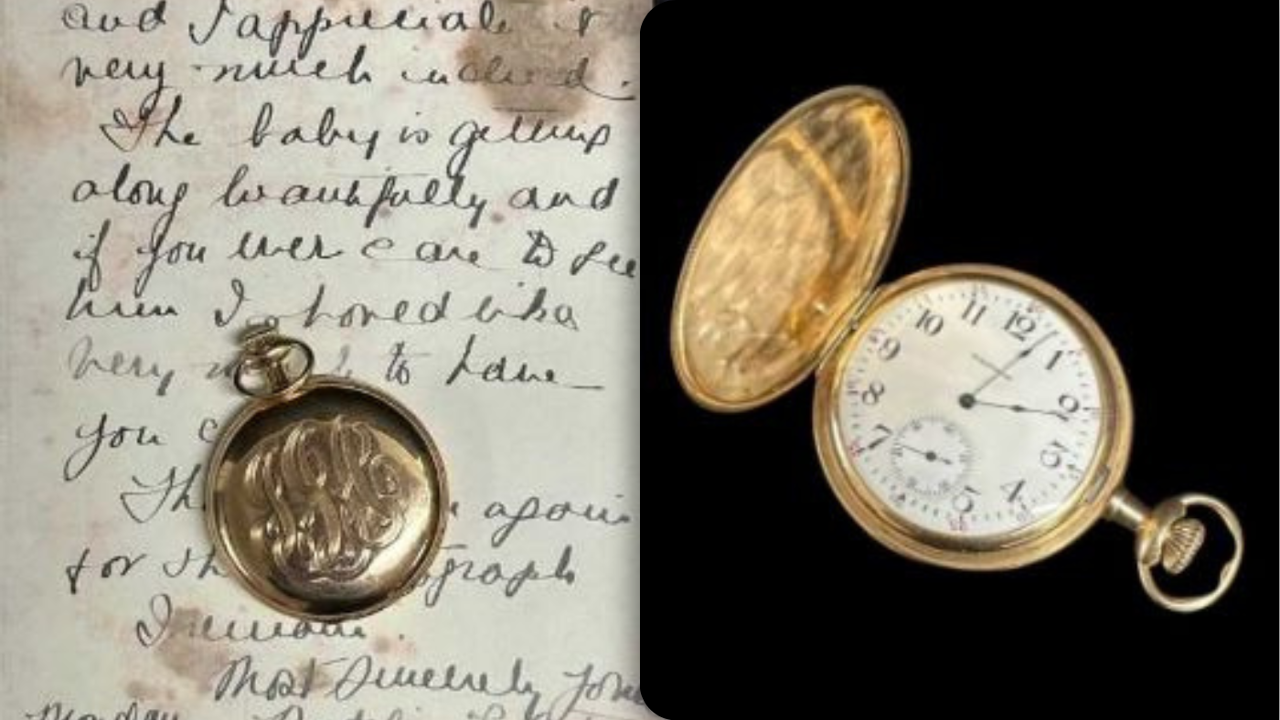 and I appreciate it
very much indeed.
The baby is getting
along beautifully and
if you ever care to see
him I should like
very to have
you
Th again
for th ograph
I remain.
Most Sincerely
Monday
11 12 1 2 3 4 5 7 8 9 10